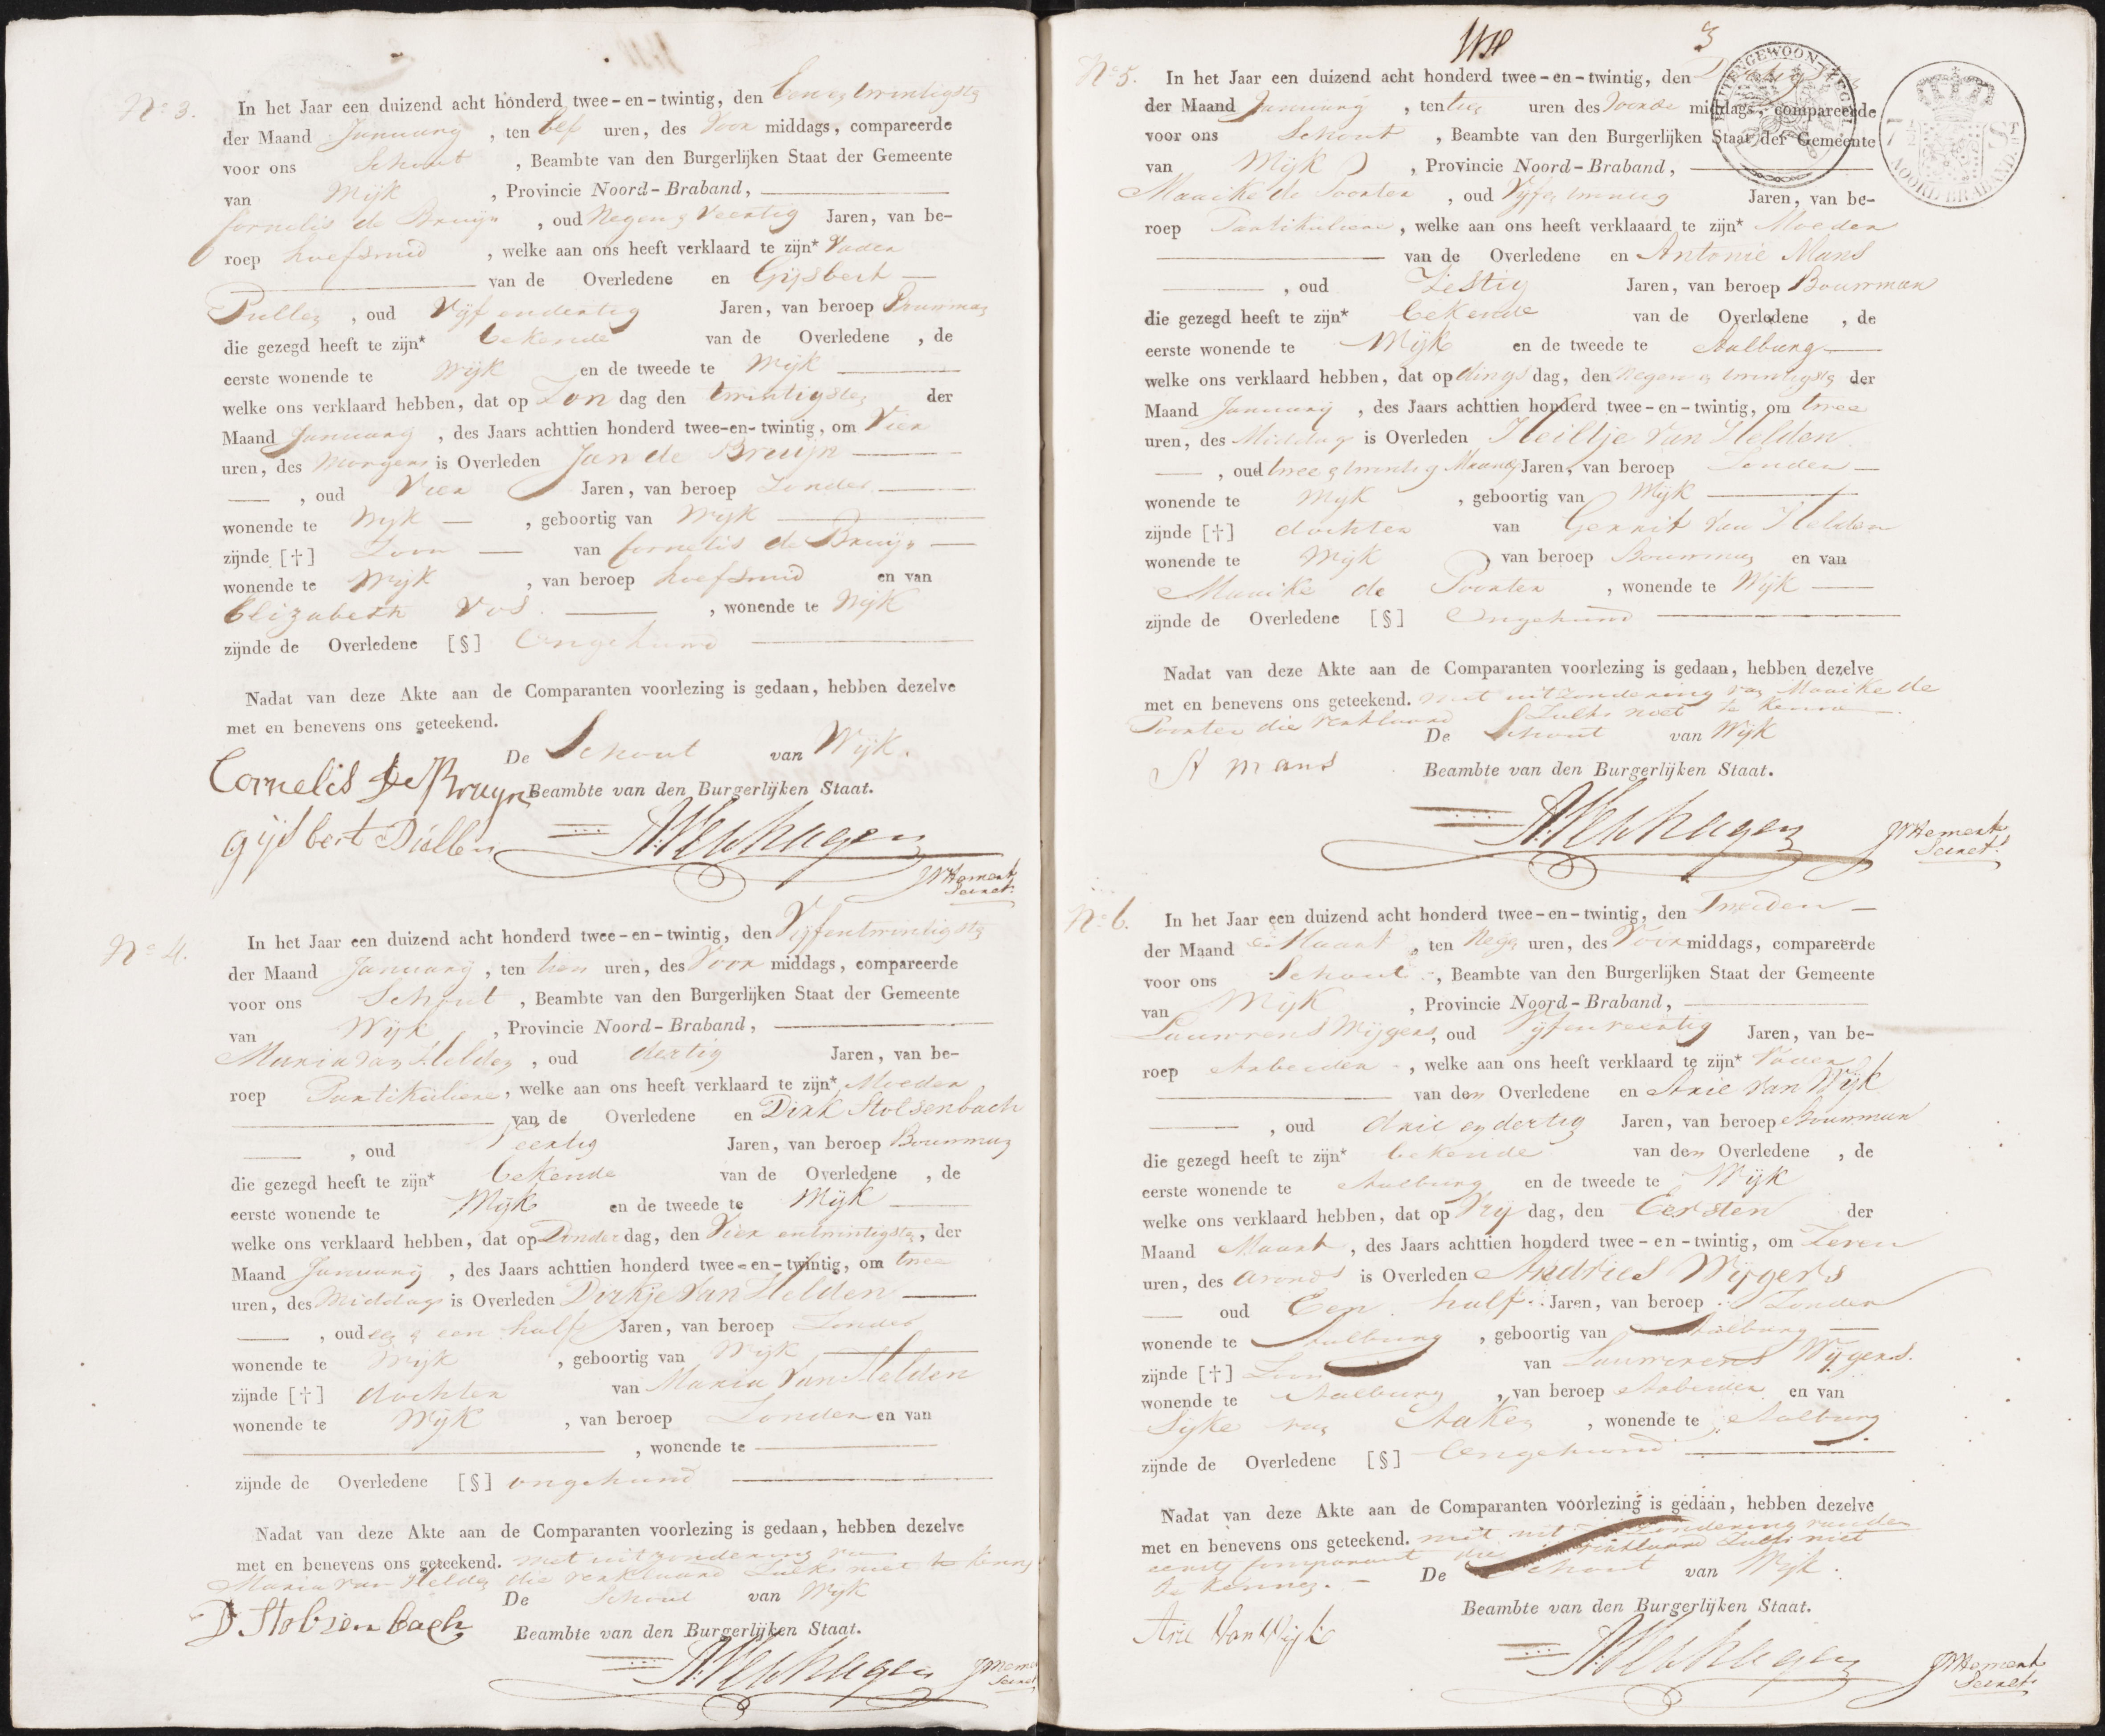 No 3.
In het Jaar een duizend acht honderd twee-en-twintig, den Een en twintigste
der Maand January , ten elf uren, des Voor middags, compareerde
voor ons Schout , Beambte van den Burgerlijken Staat der Gemeente
van Wijk , Provincie Noord-Braband,
Cornelis de Bruijn , oud Negen en Veertig Jaren, van be-
roep hoefsmid , welke aan ons heeft verklaard te zijn* Vader
van de Overledene en Gijsbert
Pullen , oud Vijf en dertig Jaren, van beroep Bouwman
die gezegd heeft te zijn* bekende van de Overledene , de
eerste wonende te Wijk en de tweede te Wijk
welke ons verklaard hebben, dat op Zon dag den twintigsten der
Maand January , des Jaars achttien honderd twee-en-twintig, om Vier
uren, des Morgens is Overleden Jan de Bruijn
, oud Vier Jaren, van beroep Zonder
wonende te Wijk , geboortig van Wijk
zijnde [†] Zoon van Cornelis de Bruijn
wonende te Wijk , van beroep hoefsmid en van
Elizabeth Vos , wonende te Wijk
zijnde de Overledene [§] Ongehuwd
Nadat van deze Akte aan de Comparanten voorlezing is gedaan, hebben dezelve
met en benevens ons geteekend.
De Schout van Wijk.
Cornelis De Bruyn Beambte van den Burgerlijken Staat.
gijsbert Pullen
Secret.
No 4.
In het Jaar een duizend acht honderd twee-en-twintig, den Vijfentwintigste
der Maand January , ten tien uren, des Voor middags, compareerde
voor ons Schout , Beambte van den Burgerlijken Staat der Gemeente
van Wijk , Provincie Noord-Braband,
Maria van Helden , oud dertig Jaren, van be-
roep Partikuliere , welke aan ons heeft verklaard te zijn* Moeder
van de Overledene en Dirk Stolsenbach
, oud Veertig Jaren, van beroep Bouwman
die gezegd heeft te zijn* bekende van de Overledene , de
eerste wonende te Wijk en de tweede te Wijk
welke ons verklaard hebben, dat op Donder dag, den Vier entwintigste, der
Maand January , des Jaars achttien honderd twee-en-twintig, om twee
uren, des Middags is Overleden Dirkje Van Helden
, oud een half Jaren, van beroep Zonder
wonende te Wijk , geboortig van Wijk
zijnde [†] dochter van Maria Van Helden
wonende te Wijk , van beroep Zonder en van
, wonende te
zijnde de Overledene [§] ongehuwd
Nadat van deze Akte aan de Comparanten voorlezing is gedaan, hebben dezelve
met en benevens ons geteekend. met uitzondering van
Maria van Helden die verklaard zulks niet te kennen
De Schout van Wijk
D Stolsenbach Beambte van den Burgerlijken Staat.
3
UITERGEWOON-ZEGEL
NOORD-BRABAND
No 5.
In het Jaar een duizend acht honderd twee-en-twintig, den
der Maand January , ten uren des Voorde middags, compareerde
voor ons Schout , Beambte van den Burgerlijken Staat der Gemeente
van Wijk , Provincie Noord-Braband,
Maaike de Poorter , oud Vijf en twintig Jaren, van be-
roep Partikuliere , welke aan ons heeft verklaaard te zijn* Moeder
van de Overledene en Antonie Mans
, oud Zestig Jaren, van beroep Bouwman
die gezegd heeft te zijn* bekende van de Overledene , de
eerste wonende te Wijk en de tweede te Aalburg
welke ons verklaard hebben, dat op dings dag, den Negen en twintigste der
Maand January , des Jaars achttien honderd twee-en-twintig, om twee
uren, des Middags is Overleden Heiltje Van Helden
, oud twee en twintig Maanden Jaren, van beroep Zonder
wonende te Wijk , geboortig van Wijk
zijnde [†] dochter van Gerrit Van Helden
wonende te Wijk , van beroep Bouwman en van
Maaike de Poorter , wonende te Wijk
zijnde de Overledene [§] Ongehuwd
Nadat van deze Akte aan de Comparanten voorlezing is gedaan, hebben dezelve
met en benevens ons geteekend. met uitzondering van Maaike de
Poorter die verklaard zulks niet te kennen
De Schout van Wijk
A mans Beambte van den Burgerlijken Staat.
Secret.
No 6.
In het Jaar een duizend acht honderd twee-en-twintig, den Tweeden
der Maand Maart , ten Negen uren, des Voormiddags, compareerde
voor ons Schout , Beambte van den Burgerlijken Staat der Gemeente
van Wijk , Provincie Noord-Braband,
Lauwrens Wijgers, oud Vijfenveertig Jaren, van be-
roep Arbeider , welke aan ons heeft verklaard te zijn* Vader
van den Overledene en Arie van Wijk
, oud drie en dertig Jaren, van beroep Bouwman
die gezegd heeft te zijn* bekende van den Overledene , de
eerste wonende te Aalburg en de tweede te Wijk
welke ons verklaard hebben, dat op Vrij dag, den Eersten der
Maand Maart , des Jaars achttien honderd twee-en-twintig, om Zeven
uren, des avonds is Overleden Andries Wijgers
oud Een half Jaren, van beroep Zonder
wonende te Aalburg , geboortig van Aalburg
zijnde [†] Zoon van Lauwrens Wijgers.
wonende te Aalburg , van beroep Arbeider en van
Sijke van Aaken , wonende te Aalburg
zijnde de Overledene [§] Ongehuwd
Nadat van deze Akte aan de Comparanten voorlezing is gedaan, hebben dezelve
met en benevens ons geteekend. met uitzondering van den
eerste Comparant die verklaard zulks niet
te kennen. De Schout van Wijk.
Beambte van den Burgerlijken Staat.
Arie Van Wijk
Secret.